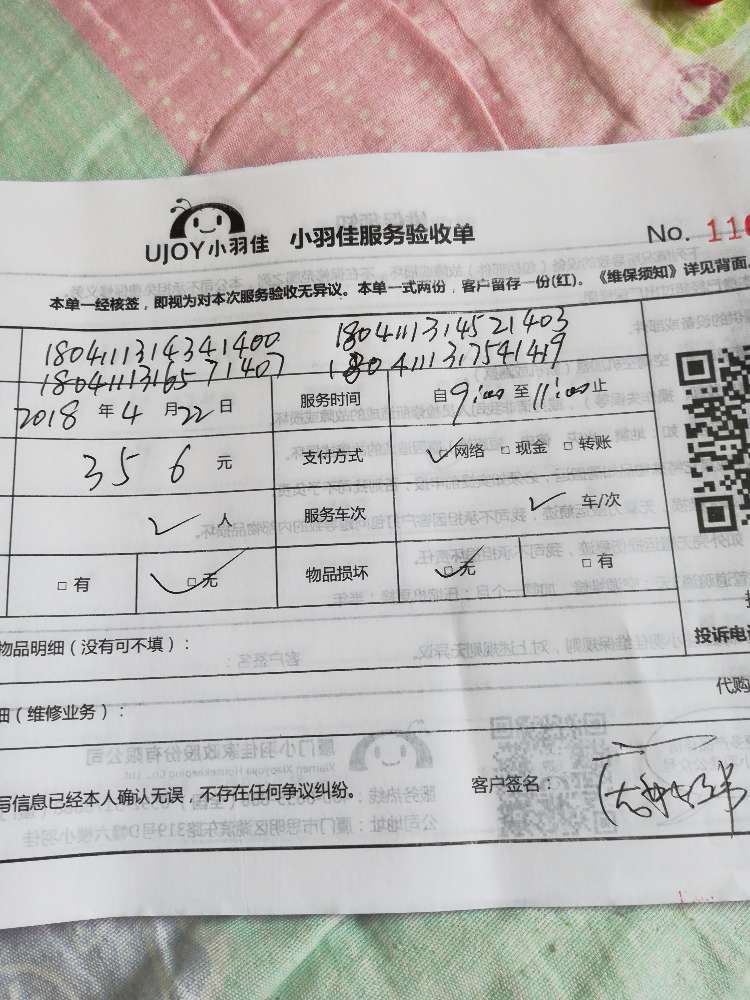 UJOY小羽佳 小羽佳服务验收单 No. 116
本单一经核签，即视为对本次服务验收无异议。本单一式两份，客户留存一份(红)。《维保须知》详见背面。
1804111314341400 1804111314521403
1804111316571407 1804111317541419
2018 年 4 月 22 日 服务时间 自 9:00 至 11:00 止
356 元 支付方式 ✓ 网络 □ 现金 □ 转账
✓ 人 服务车次 ✓ 车/次
□ 有 □ 无 物品损坏 □ 无 □ 有
投诉电
物品明细（没有可不填）：
代购
细（维修业务）：
写信息已经本人确认无误，不存在任何争议纠纷。 客户签名：